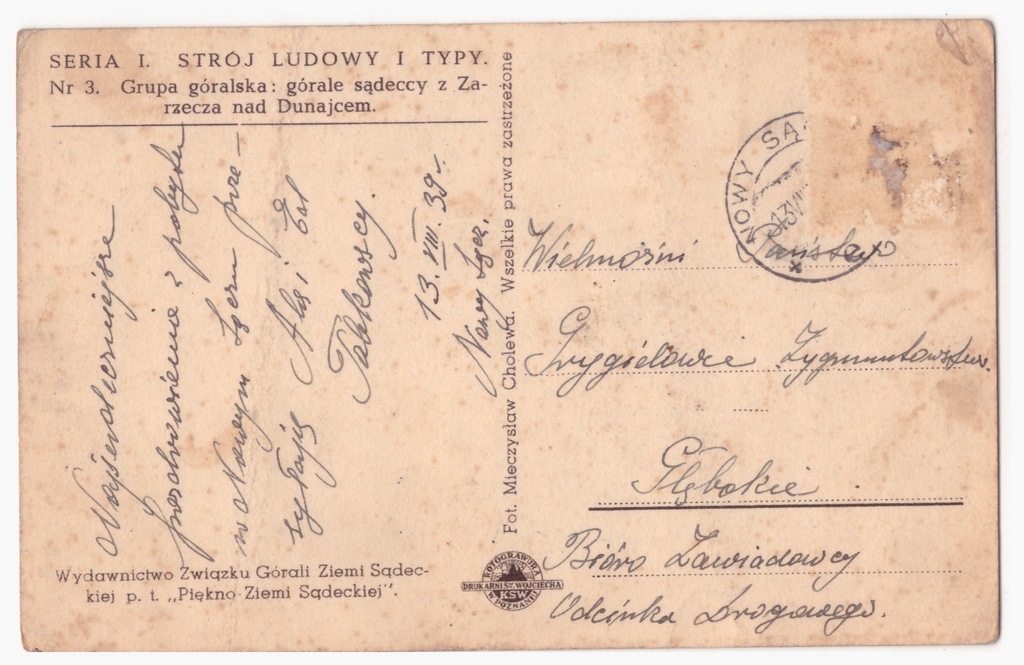 SERIA I. STRÓJ LUDOWY I TYPY.
Nr 3. Grupa góralska: górale sądeccy z Za-
rzecza nad Dunajcem.
Najserdeczniejsze
pozdrowienia z pobytu
w Nowym Sączu prze-
syłają Ala i Edl
13. VIII. 39 r.
Nowy Sącz.
Wydawnictwo Związku Górali Ziemi Sądec-
kiej p. t. „Piękno Ziemi Sądeckiej".
Fot. Mieczysław Cholewa. Wszelkie prawa zastrzeżone
ROTOGRAWURA
DRUKARNI ŚW. WOJCIECHA
KSW
W POZNANIU
NOWY SĄ
13 VIII
Wielmożni Państwo
Grygielowie Zygmuntowstwo.
Głębokie
Biuro Zawiadowcy
Odcinka Drogowego.